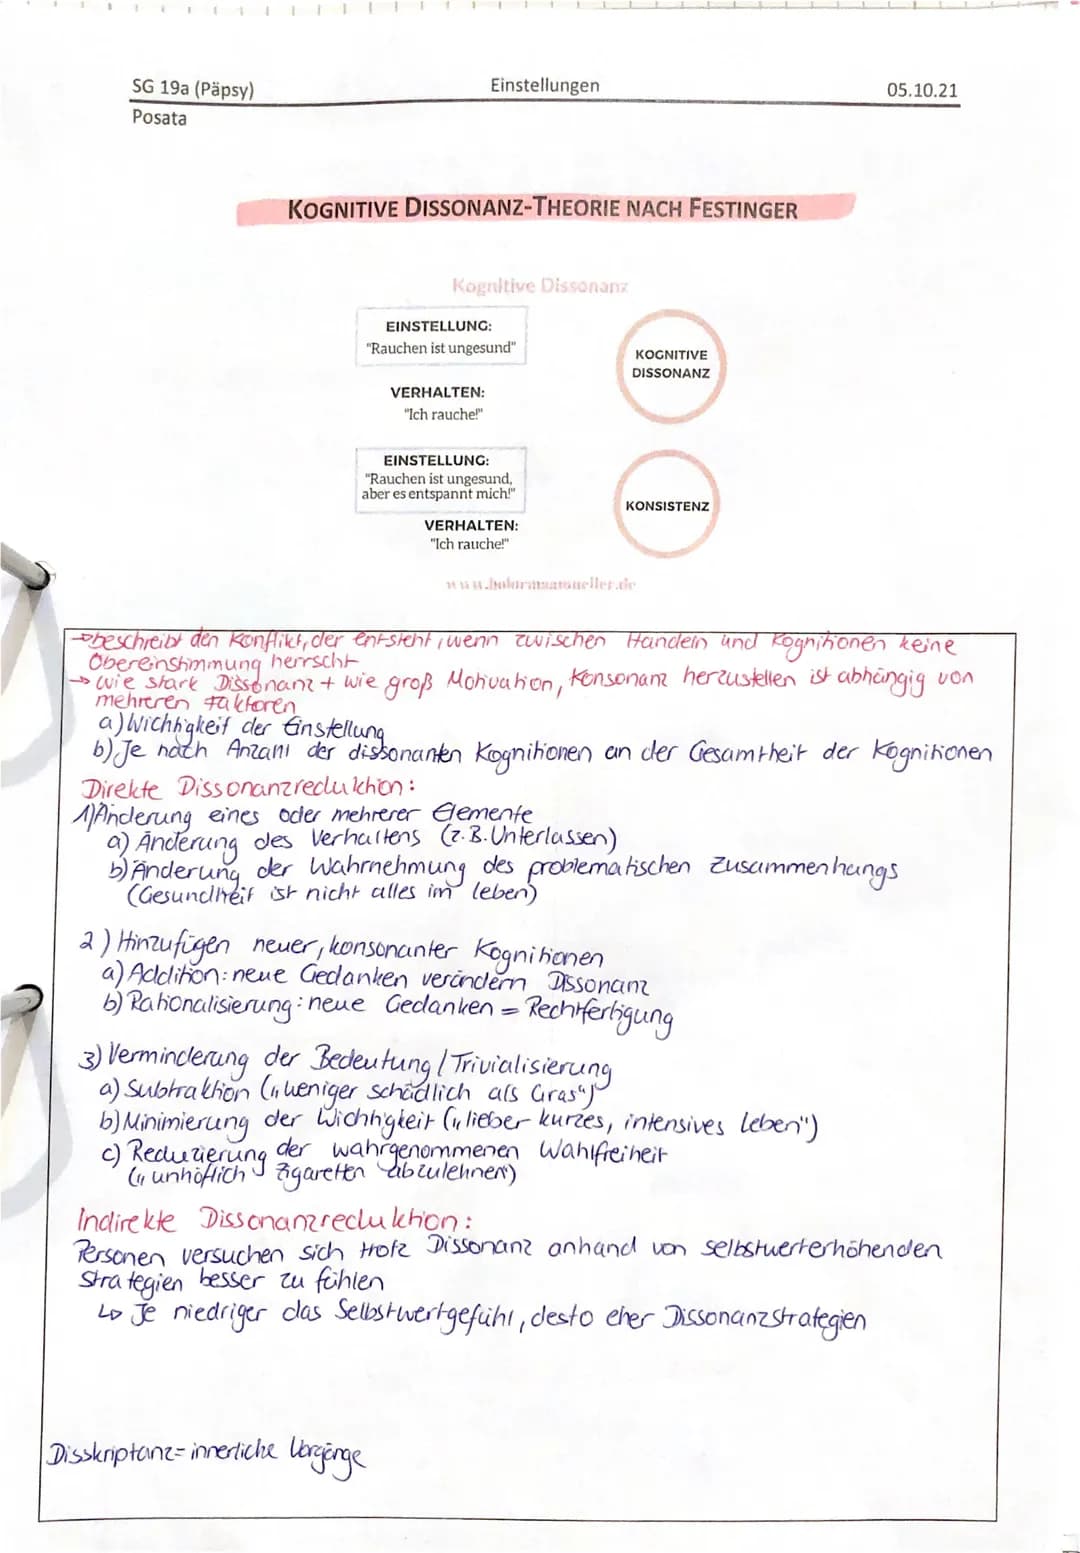 SG 19a (Päpsy)
Einstellungen
05.10.21
Posata
KOGNITIVE DISSONANZ-THEORIE NACH FESTINGER
Kognitive Dissonanz
EINSTELLUNG:
"Rauchen ist ungesund"
KOGNITIVE
DISSONANZ
VERHALTEN:
"Ich rauche!"
EINSTELLUNG:
"Rauchen ist ungesund,
aber es entspannt mich!"
KONSISTENZ
VERHALTEN:
"Ich rauche!"
→beschreibt den Konflikt, der entsteht, wenn zwischen Handeln und Kognitionen keine
Übereinstimmung herrscht
→ wie stark Dissonanz + wie groß Motivation, Konsonanz herzustellen ist abhängig von
mehreren Faktoren
a) Wichtigkeit der Einstellung
b) Je nach Anzahl der dissonanten Kognitionen an der Gesamtheit der Kognitionen
Direkte Dissonanzreduktion:
1) Änderung eines oder mehrerer Elemente
a) Änderung des Verhaltens (z.B. Unterlassen)
b) Änderung der Wahrnehmung des problematischen Zusammenhangs
(Gesundheit ist nicht alles im Leben)
2) Hinzufügen neuer, konsonanter Kognitionen
a) Addition: neue Gedanken verändern Dissonanz
b) Rationalisierung: neue Gedanken = Rechtfertigung
3) Verminderung der Bedeutung / Trivialisierung
a) Subtraktion („weniger schädlich als Gras")
b) Minimierung der Wichtigkeit („lieber kurzes, intensives Leben")
c) Reduzierung der wahrgenommenen Wahlfreiheit
(„unhöflich Zigaretten abzulehnen")
Indirekte Dissonanzreduktion:
Personen versuchen sich trotz Dissonanz anhand von selbstwerterhöhenden
Strategien besser zu fühlen
↳ Je niedriger das Selbstwertgefühl, desto eher Dissonanzstrategien
Disskriptanz = innerliche Vorgänge